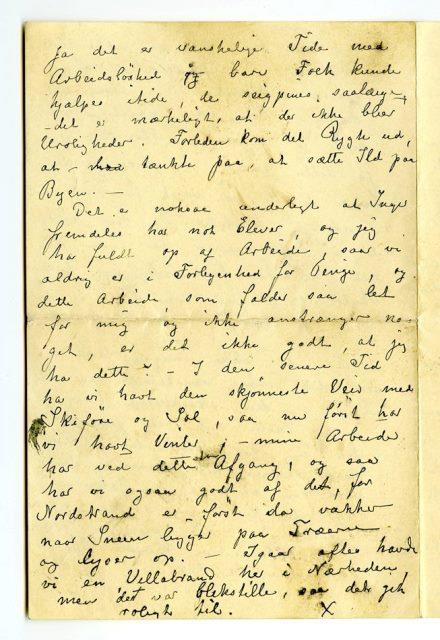 Ja det er vanskelige Tide med
Arbeidsløshed og bare Folk kunde
hjælpes itide, de
det er mærkeligt, at der ikke blev
Uroligheder. Forleden kom det Rygte ud,
at – tænkte paa, at sætte Ild paa
Byen. –
Det er noksaa underlegt at Inga
fremdeles har nok Elever, og jeg
har fuldt op af Arbeide, saa vi
aldrig er i Forlegenhed for Penge, og
dette Arbeide, som falder saa let
for mig og ikke anstrænger no-
get, er det ikke godt, at jeg
har dette! – I den senere Tid
har vi havt den skjønneste Veir med
Skiføre og Sol, saa nu først har
vi havt Vinter; – mine Arbeide
har ved dette Afgang, og saa
har vi ogsaa godt af det, for
Nordstrand er først da vakker
naar Sneen ligger paa Træerne
og lyser op. – Igaar aftes havde
vi en Villabrand her i Nærheden,
men det var blekstille, saa det gik
roligt til. X